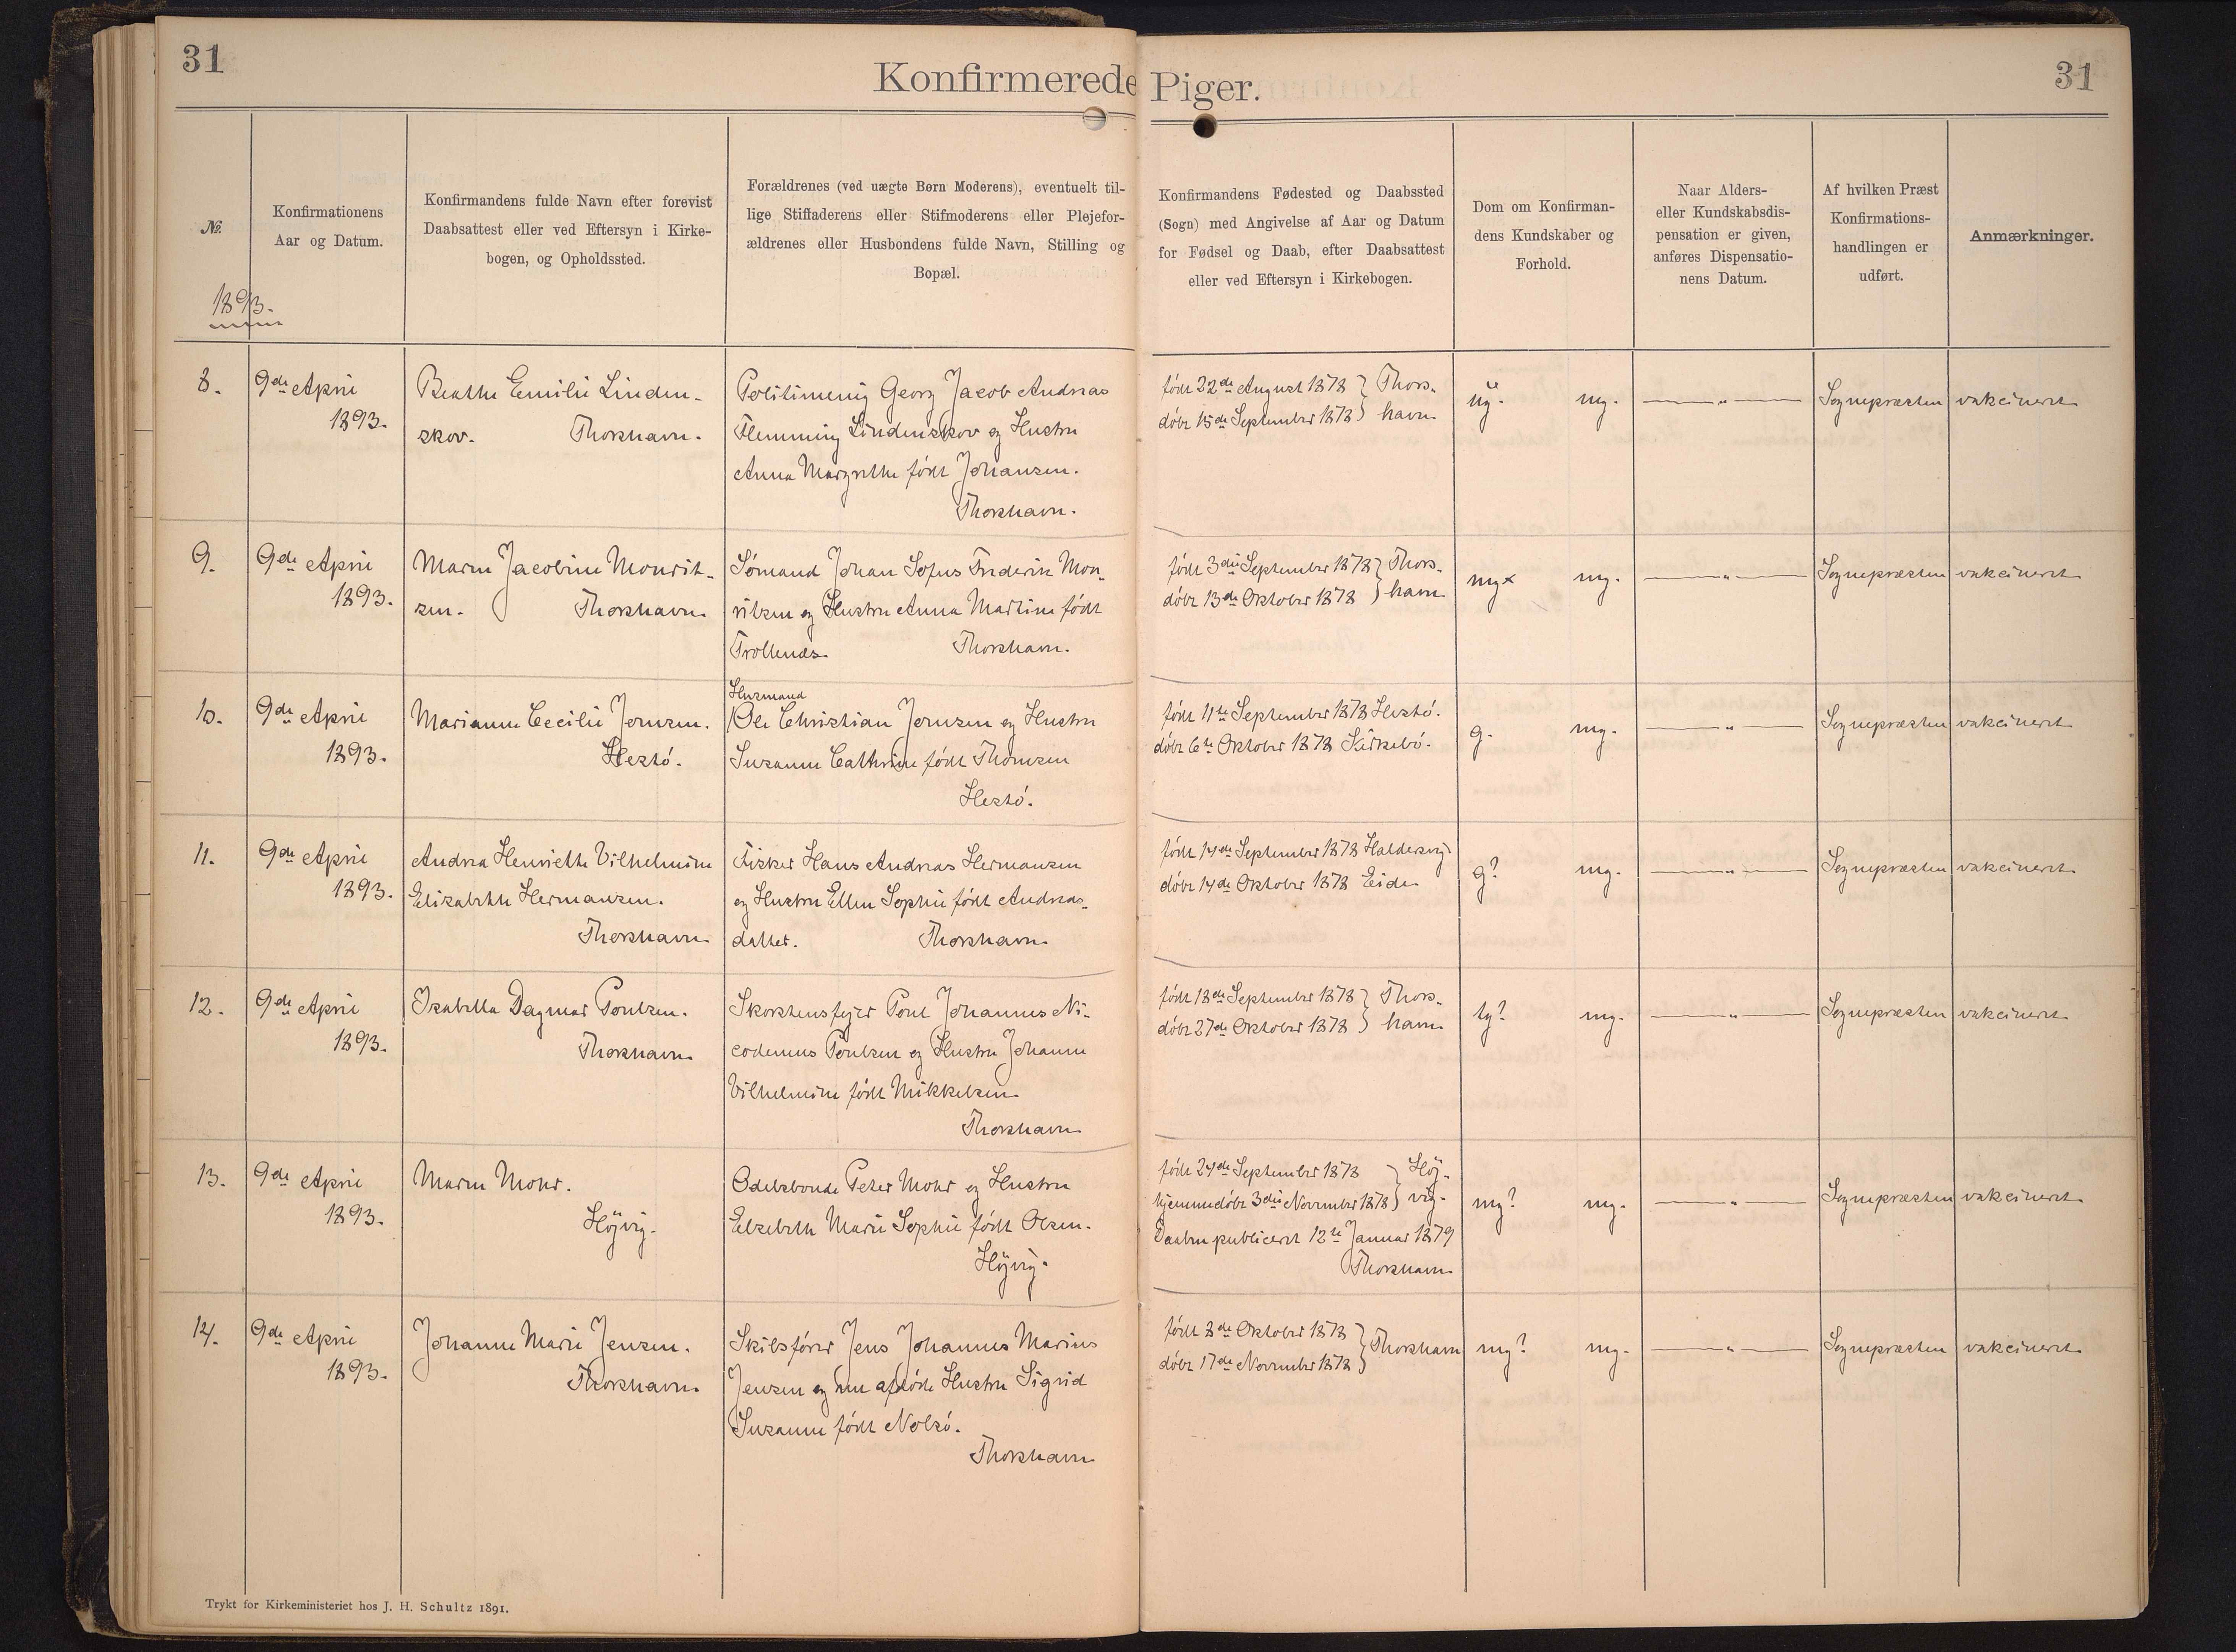 31
Konfirmerede Piger.
31
№.
Konfirmationens
Aar og Datum.
Konfirmandens fulde Navn efter forevist
Daabsattest eller ved Eftersyn i Kirke-
bogen, og Opholdssted.
Forældrenes (ved uægte Børn Moderens), eventuelt til-
lige Stiffaderens eller Stifmoderens eller Plejefor-
ældrenes eller Husbondens fulde Navn, Stilling og
Bopæl.
Konfirmandens Fødested og Daabssted
(Sogn) med Angivelse af Aar og Datum
for Fødsel og Daab, efter Daabsattest
eller ved Eftersyn i Kirkebogen.
Dom om Konfirman-
dens Kundskaber og
Forhold.
Naar Alders-
eller Kundskabsdis-
pensation er given,
anføres Dispensatio-
nens Datum.
Af hvilken Præst
Konfirmations-
handlingen er
udført.
Anmærkninger.
1893.
8.
9de April
1893.
Beathe Emilie Linden-
skov. Thorshavn.
Politimenig Georg Jacob Andreas
Flemming Lindenskov og Hustru
Anna Margrethe født Johansen.
Thorshavn.
født 22de August 1878 } Thors-
døbt 15de September 1878 } havn
ug. mg.
— " —
Sognepræsten
vakcineret
9.
9de April
1893.
Maren Jacobine Mourit-
sen. Thorshavn
Sømand Johan Sofus Frederik Mou-
ritsen og Hustru Anna Martine født
Trollenæs. Thorshavn.
født 3die September 1878 } Thors-
døbt 13de Oktober 1878 } havn
mg× mg.
— " —
Sognepræsten
vakcineret
10.
9de April
1893.
Marianne Cecilie Joensen.
Hestø.
Husmand
Ole Christian Joensen og Hustru
Susanne Cathrine født Thomsen
Hestø.
født 11te September 1878 Hestø.
døbt 6te Oktober 1878 Kirkebø.
g. mg.
— " —
Sognepræsten
vakcineret
11.
9de April
1893.
Andrea Henriette Vilhelmine
Elisabeth Hermansen.
Thorshavn
Fisker Hans Andreas Hermansen
og Hustru Ellen Sophie født Andreas-
datter. Thorshavn
født 14de September 1878 Haldersvig
døbt 14de Oktober 1878 Eide
g? mg.
— " —
Sognepræsten
vakcineret
12.
9de April
1893.
Isabella Dagmar Poulsen.
Thorshavn
Skorstensfejer Poul Johannes Ni-
codemus Poulsen og Hustru Johanne
Vilhelmine født Mikkelsen
Thorshavn
født 18de September 1878 } Thors-
døbt 27de Oktober 1878 } havn
tg? mg.
— " —
Sognepræsten
vakcineret
13.
9de April
1893.
Maren Mohr.
Höjvig.
Odelsbonde Peter Mohr og Hustru
Elsebeth Marie Sophie født Olsen.
Höjvig.
født 24de September 1878 } Höj-
hjemmedøbt 3die November 1878 } vig.
Daaben publiceret 12te Januar 1879
Thorshavn
mg? mg.
— " —
Sognepræsten
vakcineret
14.
9de April
1893.
Johanne Marie Jensen.
Thorshavn.
Skibsfører Jens Johannes Marius
Jensen og nu afdøde Hustru Sigrid
Susanne født Nolsø.
Thorshavn
født 8de Oktober 1878 } Thorshavn
døbt 17de November 1878 }
mg? mg.
— " —
Sognepræsten
vakcineret
Trykt for Kirkeministeriet hos J. H. Schultz 1891.